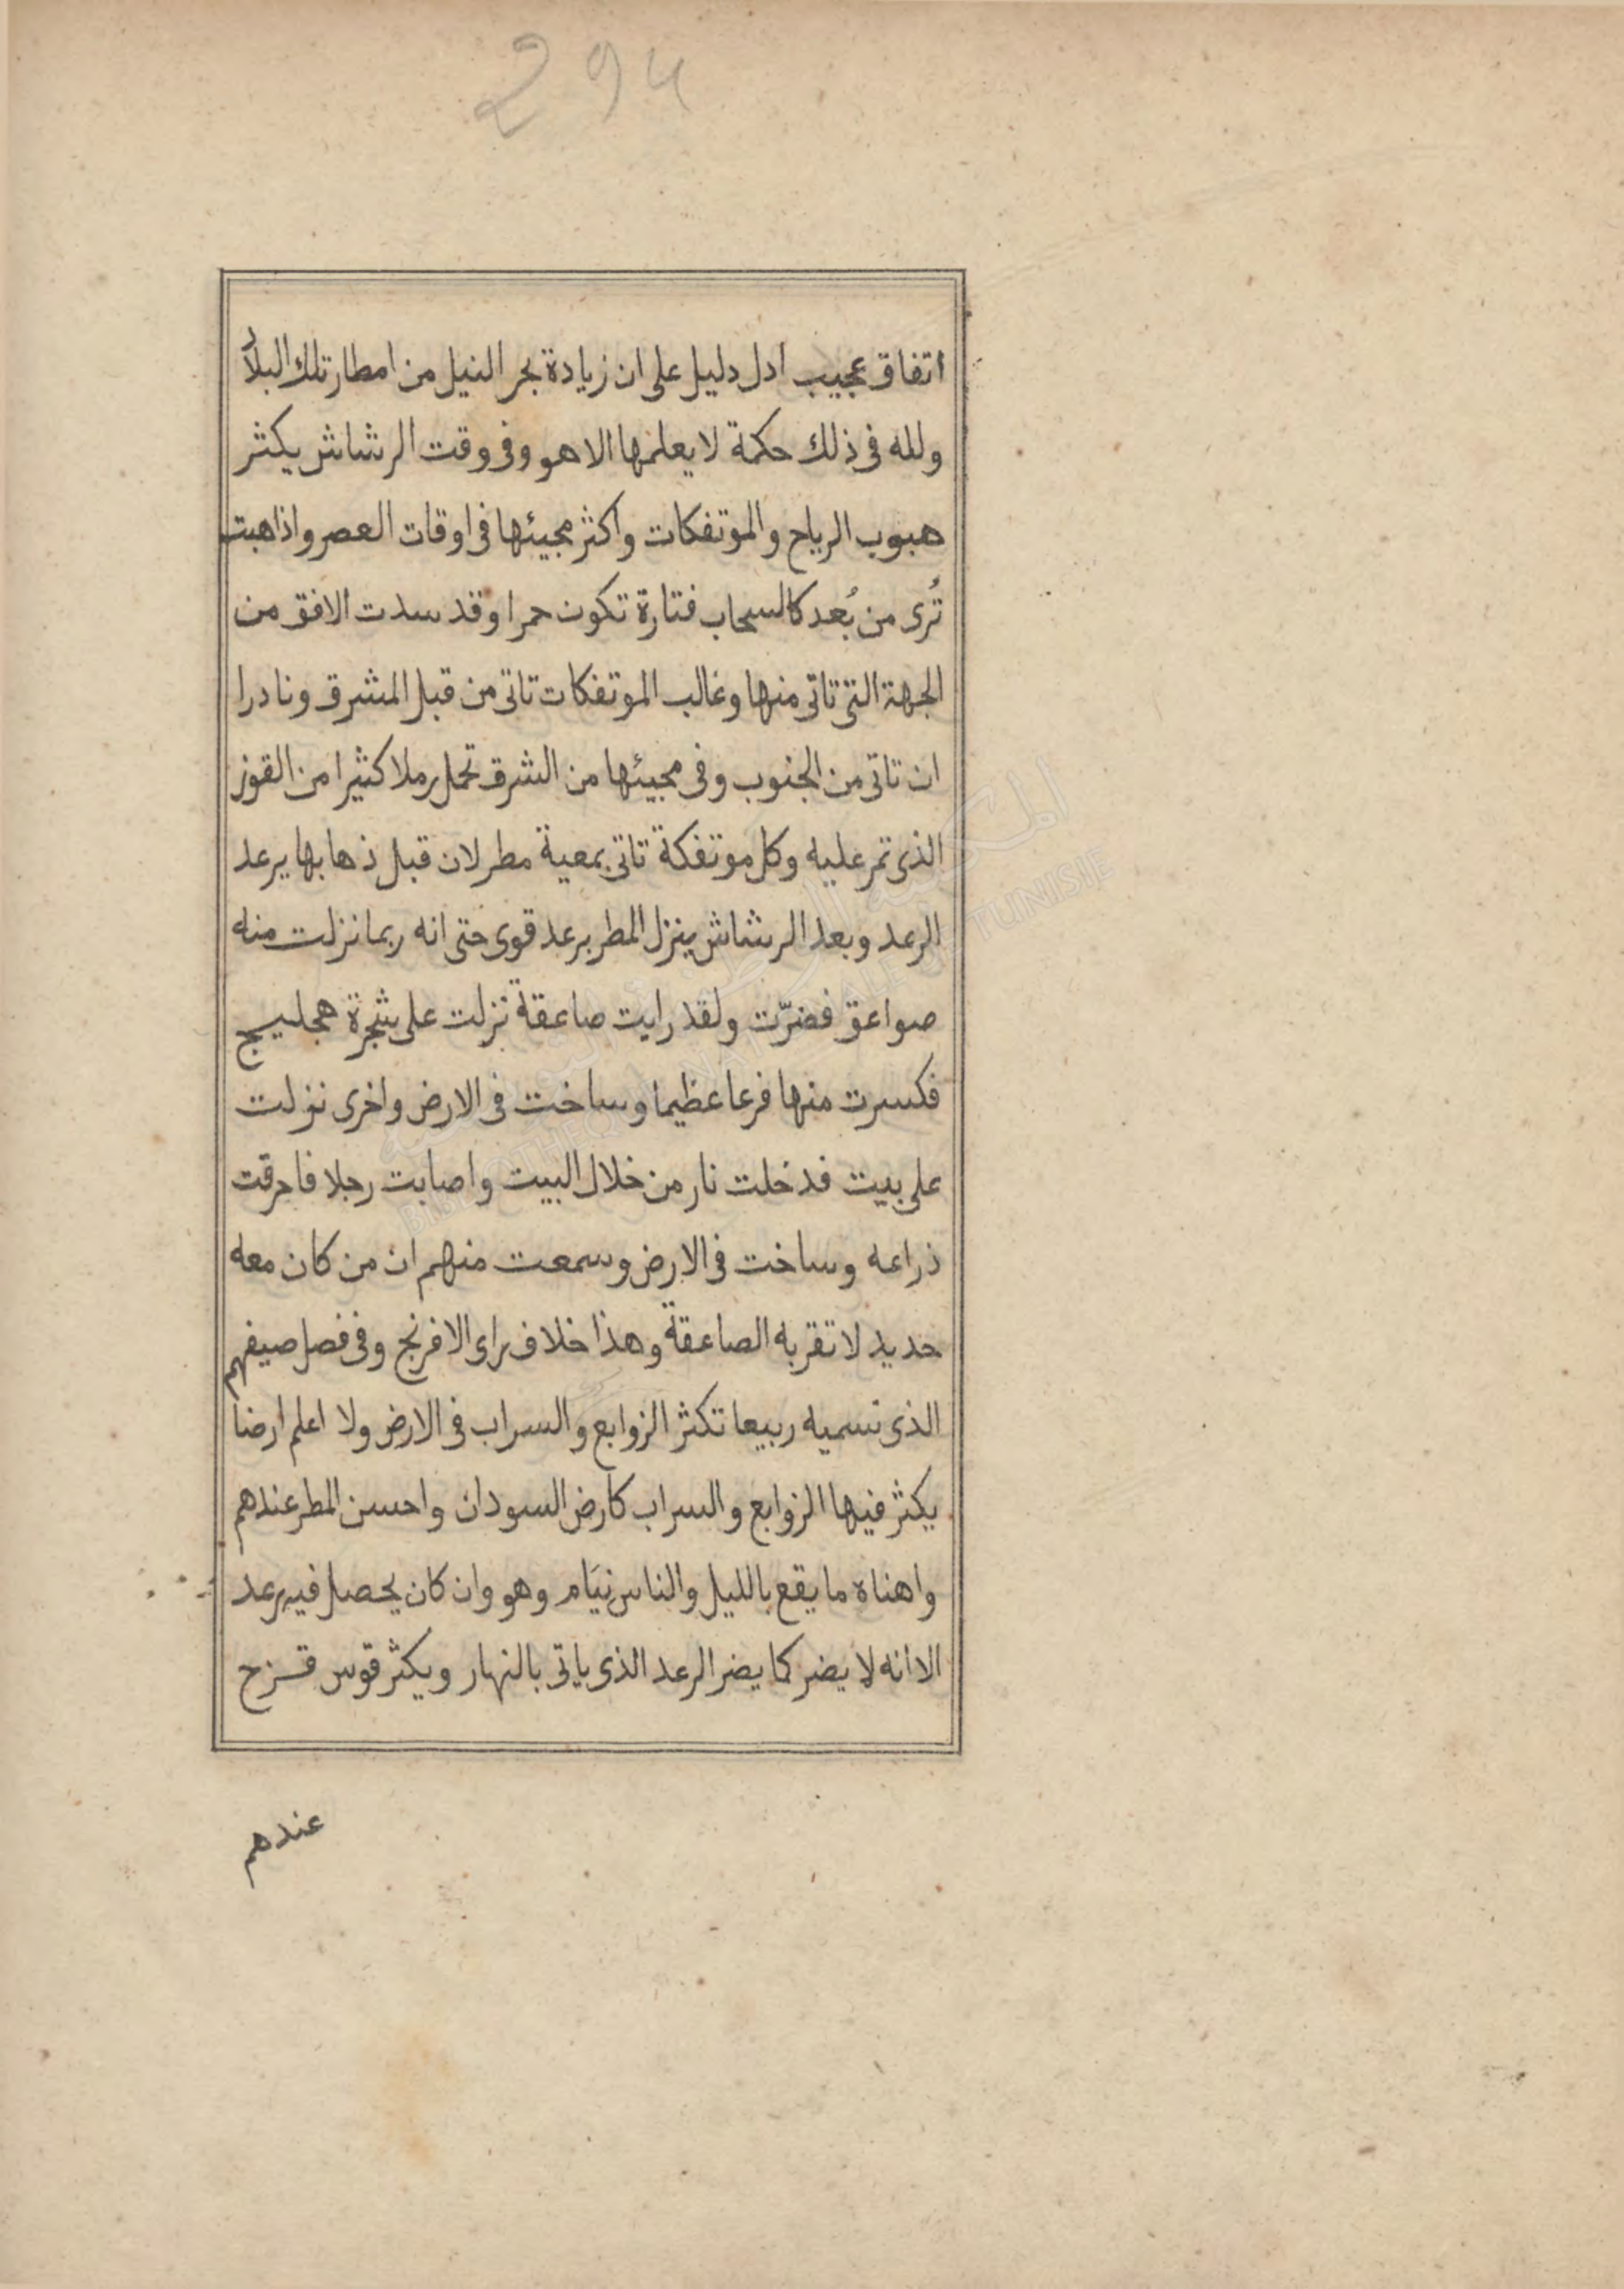 294
اتفاق عجيب ادل دليل على ان زيادة بحر النيل من امطار تلك البلاد
ولله فى ذلك حكمة لا يعلمها الا هو وفى وقت الرشاش يكثر
هبوب الرياح والموتفكات واكثر مجيئها فى اوقات العصر واذا هبت
تُرى من بُعد كالسحاب فتارة تكون حمرا وقد سدت الافق من
الجهة التى تاتى منها وغالب الموتفكات تاتى من قبل المشرق ونادرا
ان تاتى من الجنوب وفى مجيئها من الشرق تحمل رملا كثيرا من القوز
الذى تمر عليه وكل موتفكة تاتى بمعية مطر لان قبل ذهابها يرعد
الرعد وبعد الرشاش ينزل المطر برعد قوى حتى انه ربما نزلت منه
صواعق فضرّت ولقد رايت صاعقة نزلت على شجرة هجليج
فكسرت منها فرعا عظيما وساخت فى الارض واخرى نزلت
على بيت فدخلت نار من خلال البيت واصابت رجلا فاحرقت
ذراعه وساخت فى الارض وسمعت منهم ان من كان معه
حديد لا تقربه الصاعقة وهذا خلاف راى الافرنج وفى فصل صيفهم
الذى نسميه ربيعا تكثر الزوابع والسراب فى الارض ولا اعلم ارضا
يكثر فيها الزوابع والسراب كارض السودان واحسن المطر عندهم
واهناه ما يقع بالليل والناس نيَام وهو وان كان يحصل فيه رعد
الا انه لا يضر كما يضر الرعد الذى ياتى بالنهار ويكثر قوس قزح
عندهم
BIBLIOTHEQUE NATIONALE DE TUNISIE